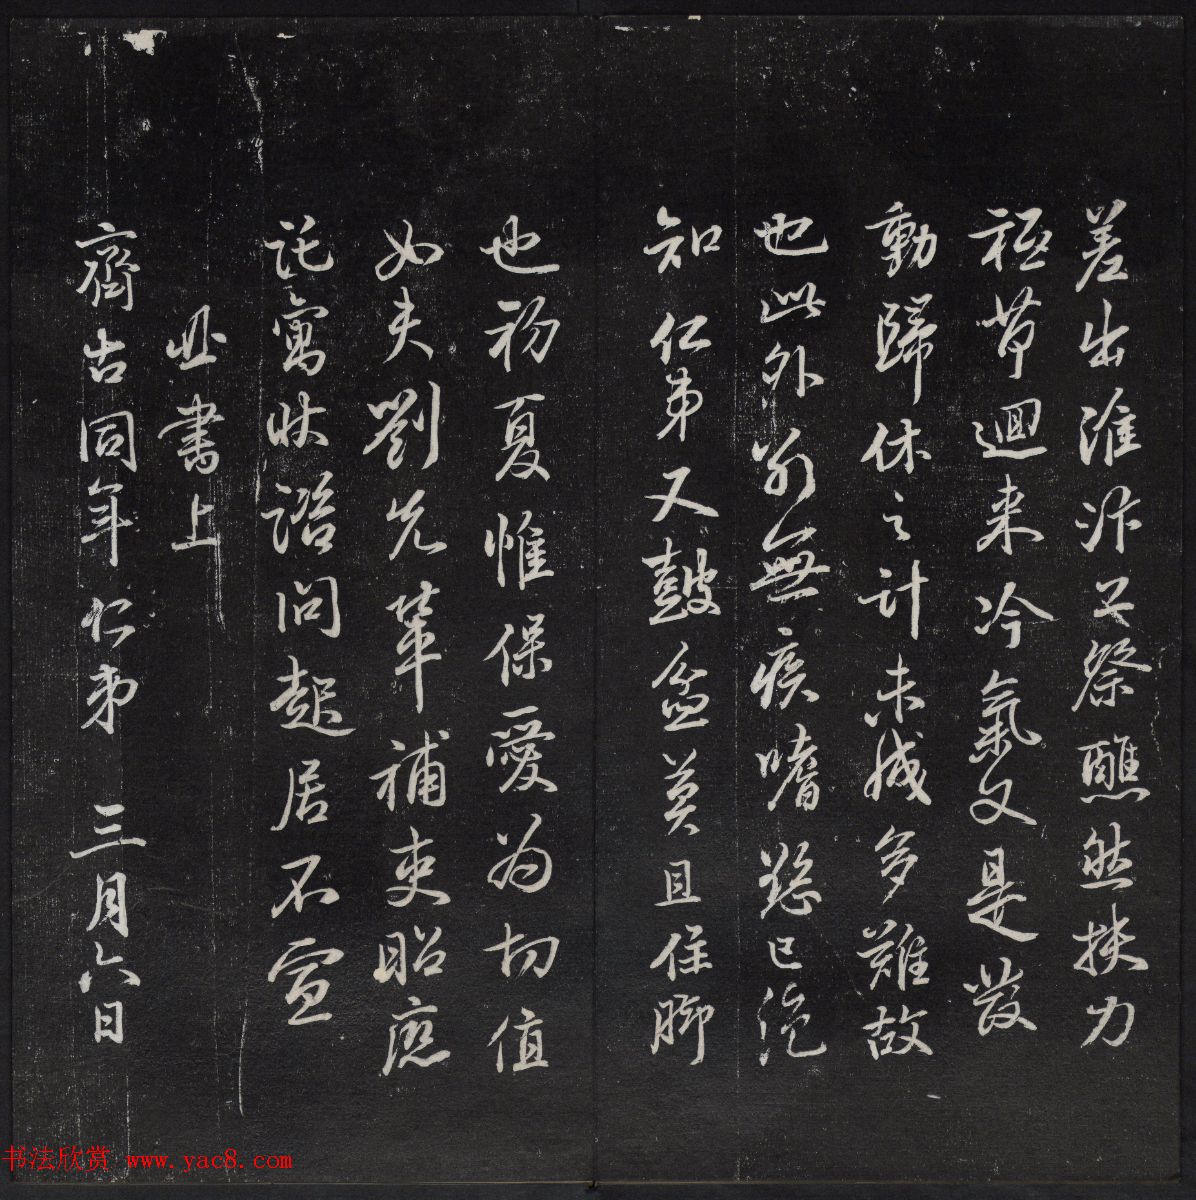 差出淮汴
祭醮然挾力
極幕迴來冷氣又是發
動歸休之計未成多難故
也此外別無疾嗜慾已絕
知仁弟又鼓盆莫且住腳
也初夏惟保愛為切值
如夫劉先輩補吏昭應
託寓狀諮問起居不宣
書上
齊古同年仁弟 三月六日
书法欣赏 www.yac8.com